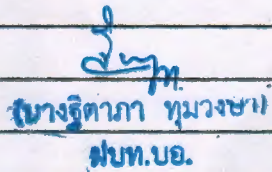 (นางฐิตาภา ทุมวงษา)
ผบท.บอ.